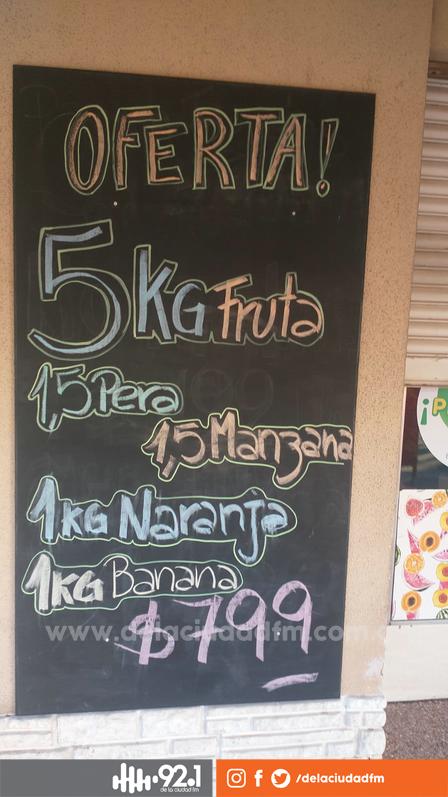 OFERTA!
5KG Fruta
1,5 Pera
1,5 Manzana
1KG Naranja
1KG Banana
$799
www.delaciudadfm.com
¡P
92.1
de la ciudad fm
/delaciudadfm